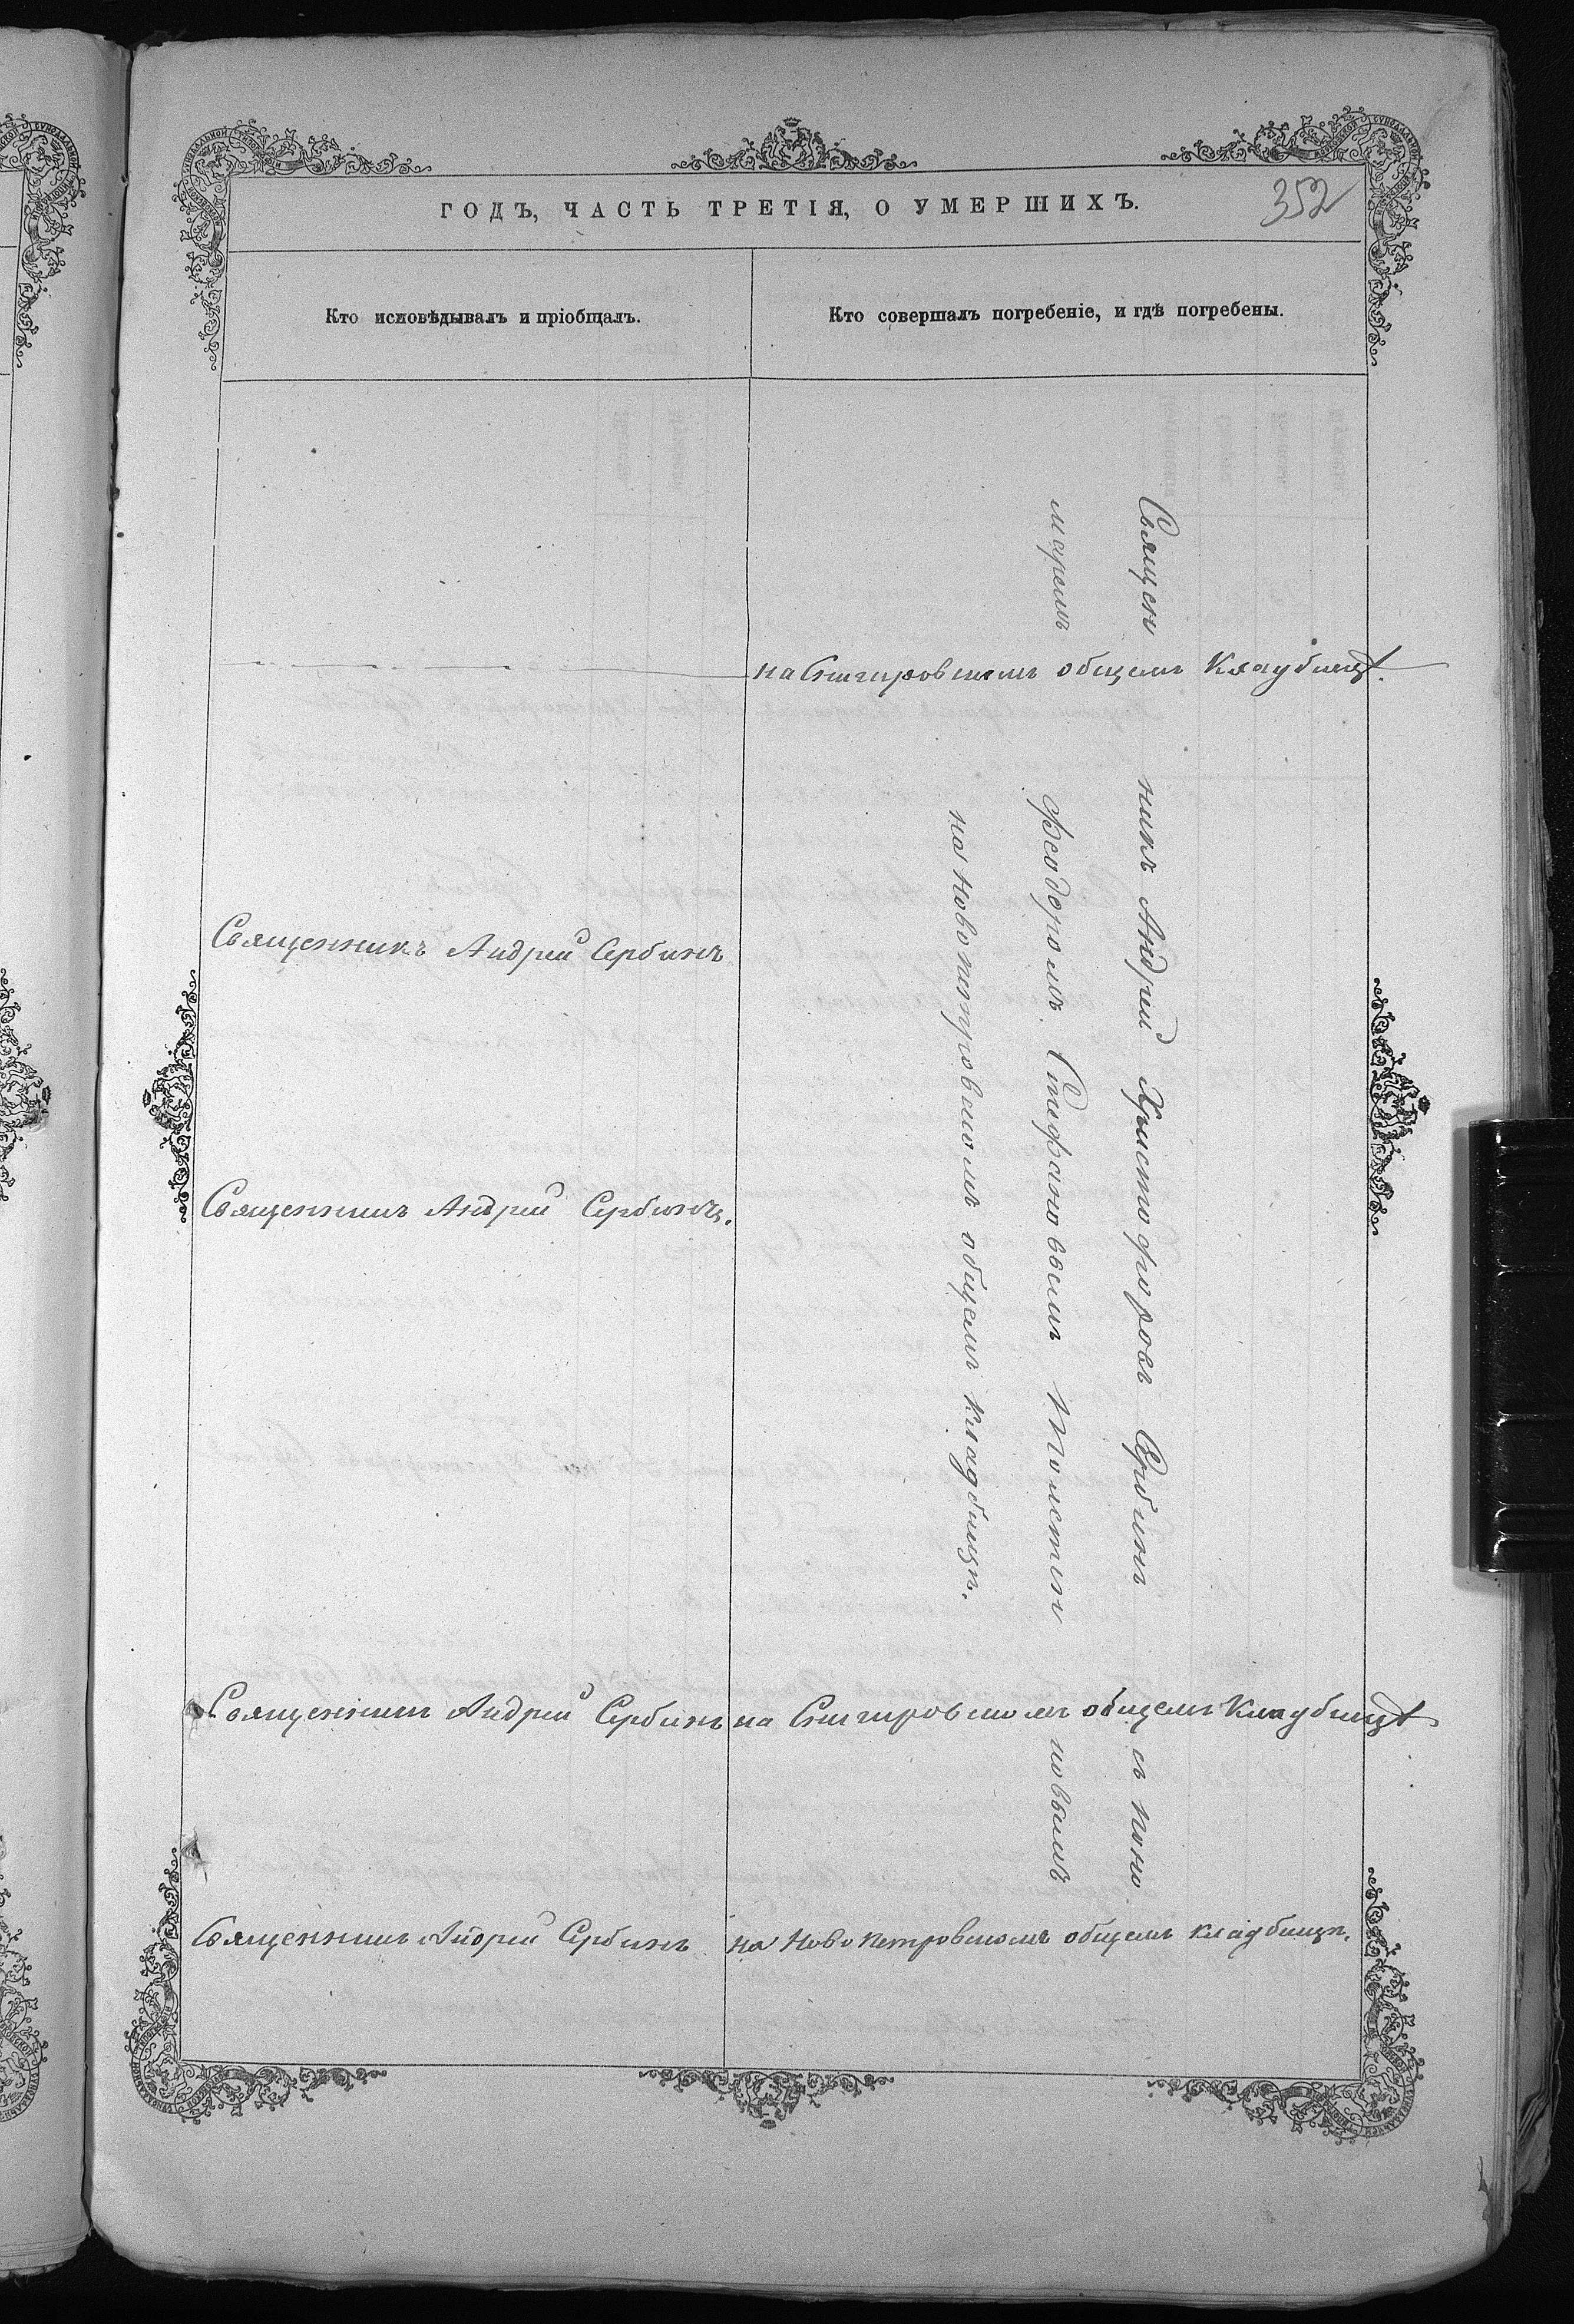 ГОДЪ, ЧАСТЬ ТРЕТІЯ, О УМЕРШИХЪ.
352
Кто исповѣдывалъ и пріобщалъ.
Кто совершалъ погребеніе, и гдѣ погребены.
Священникъ Андрей Христофоровъ Сербинъ съ поно
маремъ Феодоромъ Стефановымъ Толстен ковымъ
на Новопетровскомъ общемъ кладбищѣ.
на общемъ Кладбищѣ.
Священникъ Андрей Сербинъ
Священникъ Андрей Сербинъ.
Священникъ Андрей Сербинъ на общемъ Кладбищѣ
Священникъ Андрей Сербинъ на Новопетровскомъ общемъ кладбищѣ.